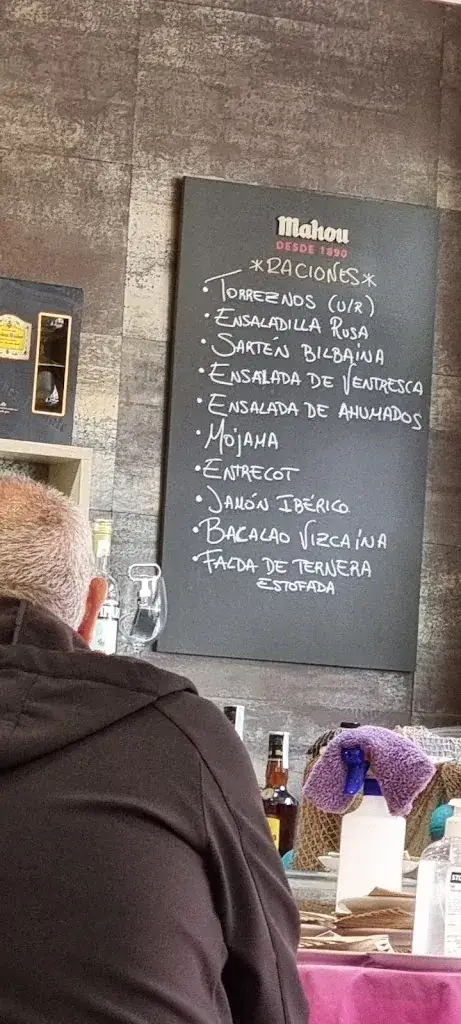 Mahou
DESDE 1890
*RACIONES*
•TORREZNOS (U/R)
•ENSALADILLA RUSA
•SARTÉN BILBAÍNA
•ENSALADA DE VENTRESCA
•ENSALADA DE AHUMADOS
•MOJAMA
•ENTRECOT
•JAMÓN IBÉRICO
•BACALAO VIZCAÍNA
•FALDA DE TERNERA
ESTOFADA